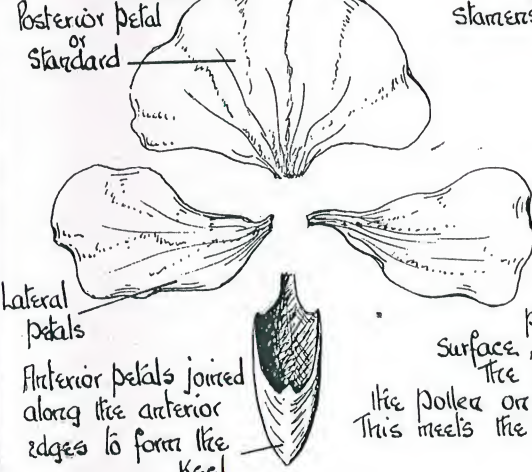 Posterior petal
or
Standard
Stamens
Lateral
petals
Anterior petals joined
along the anterior
edges to form the
Keel
Surface
The
the pollen on
This meets the